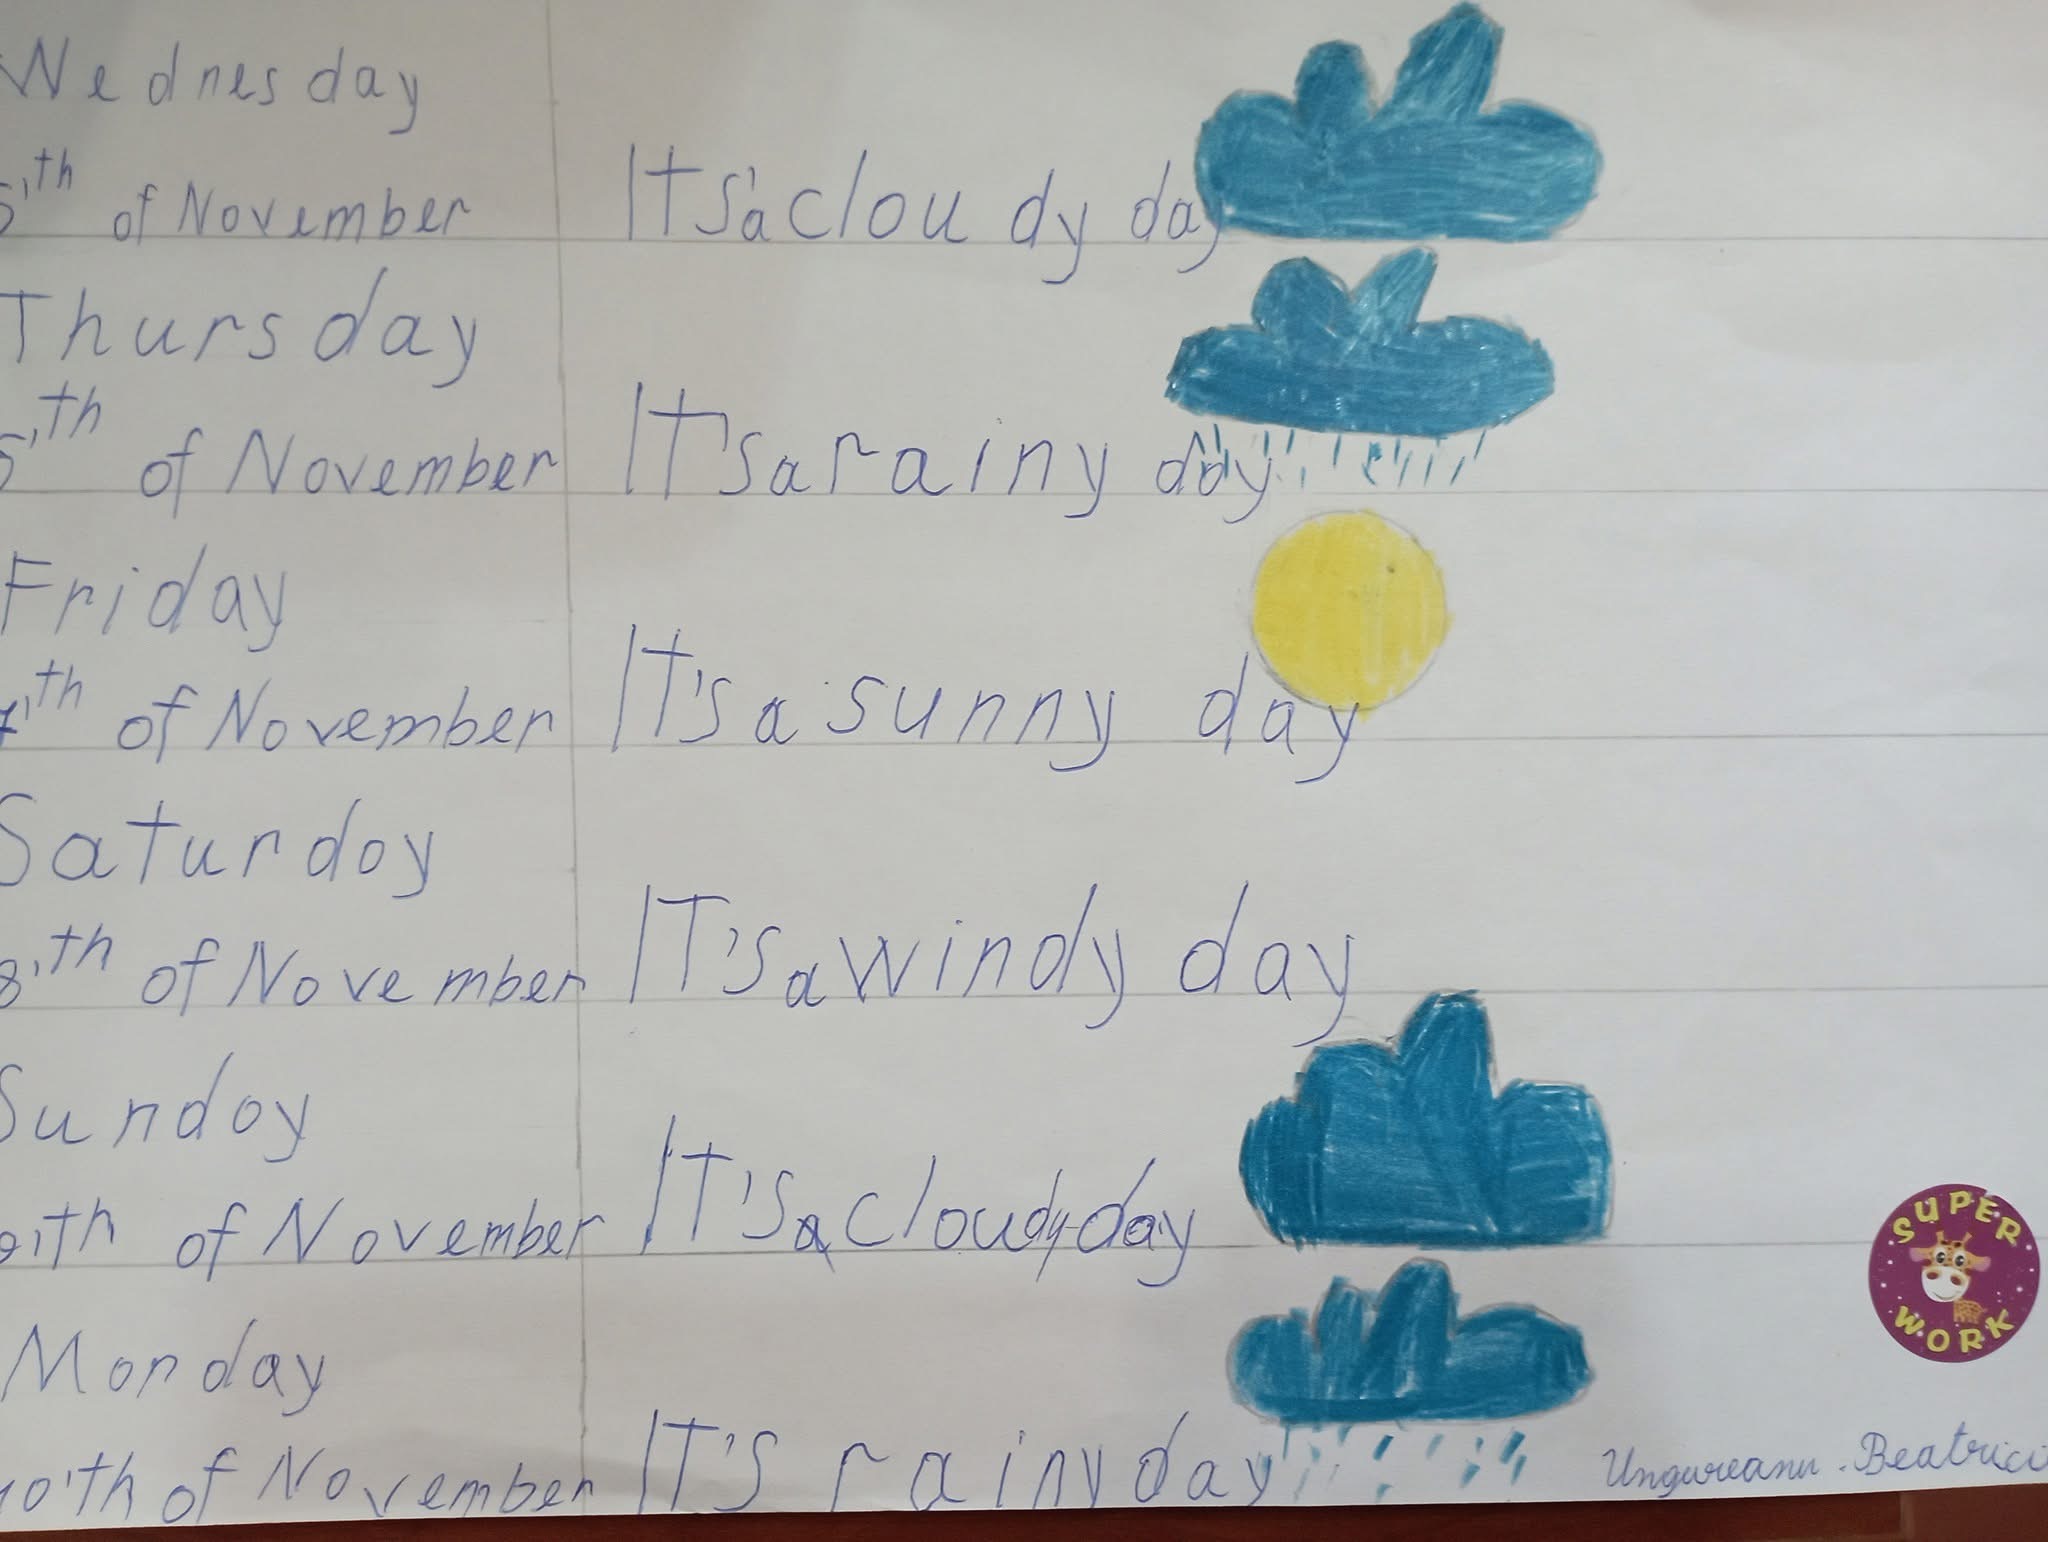 Wednesday
5'th of November It's a cloudy day
Thursday
of November It's a rainy day
Friday
7'th of November It's a sunny day
Saturday
8'th of November It's a windy day
Sunday
9'th of November It's a cloudy day
Monday
10'th of November It's rainy day
SUPER WORK
Ungureanu Beatrici